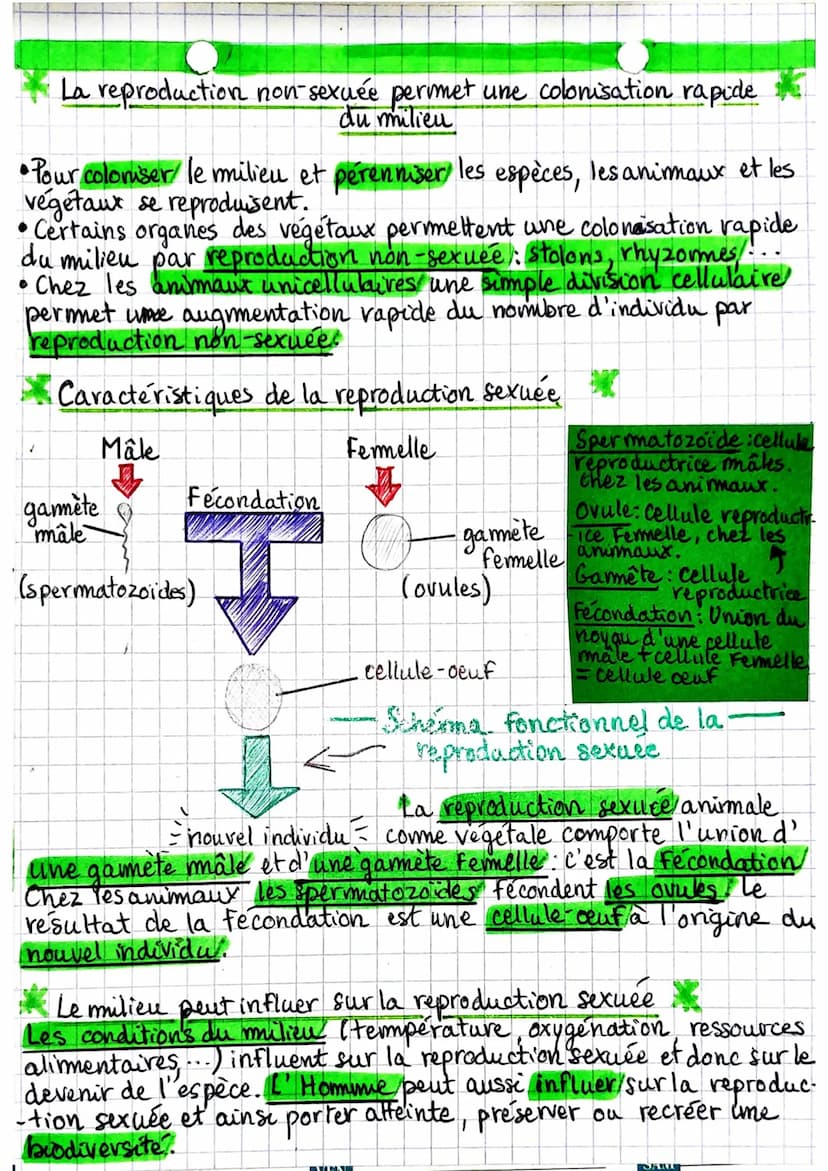 La reproduction non-sexuée permet une colonisation rapide
du milieu
•Pour coloniser le milieu et pérenniser les espèces, les animaux et les
végétaux se reproduisent.
•Certains organes des végétaux permettent une colonisation rapide
du milieu par reproduction non-sexuée : stolons, rhyzomes, ...
•Chez les animaux unicellulaires une simple division cellulaire
permet une augmentation rapide du nombre d'individu par
reproduction non-sexuée.
Caractéristiques de la reproduction sexuée
Mâle
Femelle
Fécondation
gamète
mâle
(spermatozoïdes)
gamète
femelle
(ovules)
Spermatozoïde : cellule
reproductrice mâles.
chez les animaux.
Ovule : cellule reproductr-
ice Femelle, chez les
animaux.
Gamète : cellule
reproductrice
Fécondation : Union du
noyau d'une cellule
mâle + cellule Femelle
= cellule œuf
cellule-oeuf
— Schéma fonctionnel de la —
reproduction sexuée
nouvel individu
La reproduction sexuée animale
comme végétale comporte l'union d'
une gamète mâle et d'une gamète femelle : c'est la fécondation
Chez les animaux les spermatozoïdes fécondent les ovules. Le
résultat de la fécondation est une cellule-œuf à l'origine du
nouvel individu.
Le milieu peut influer sur la reproduction sexuée
Les conditions du milieu (température, oxygénation, ressources
alimentaires, ...) influent sur la reproduction sexuée et donc sur le
devenir de l'espèce. L'Homme peut aussi influer sur la reproduc-
-tion sexuée et ainsi porter atteinte, préserver ou recréer une
biodiversité.